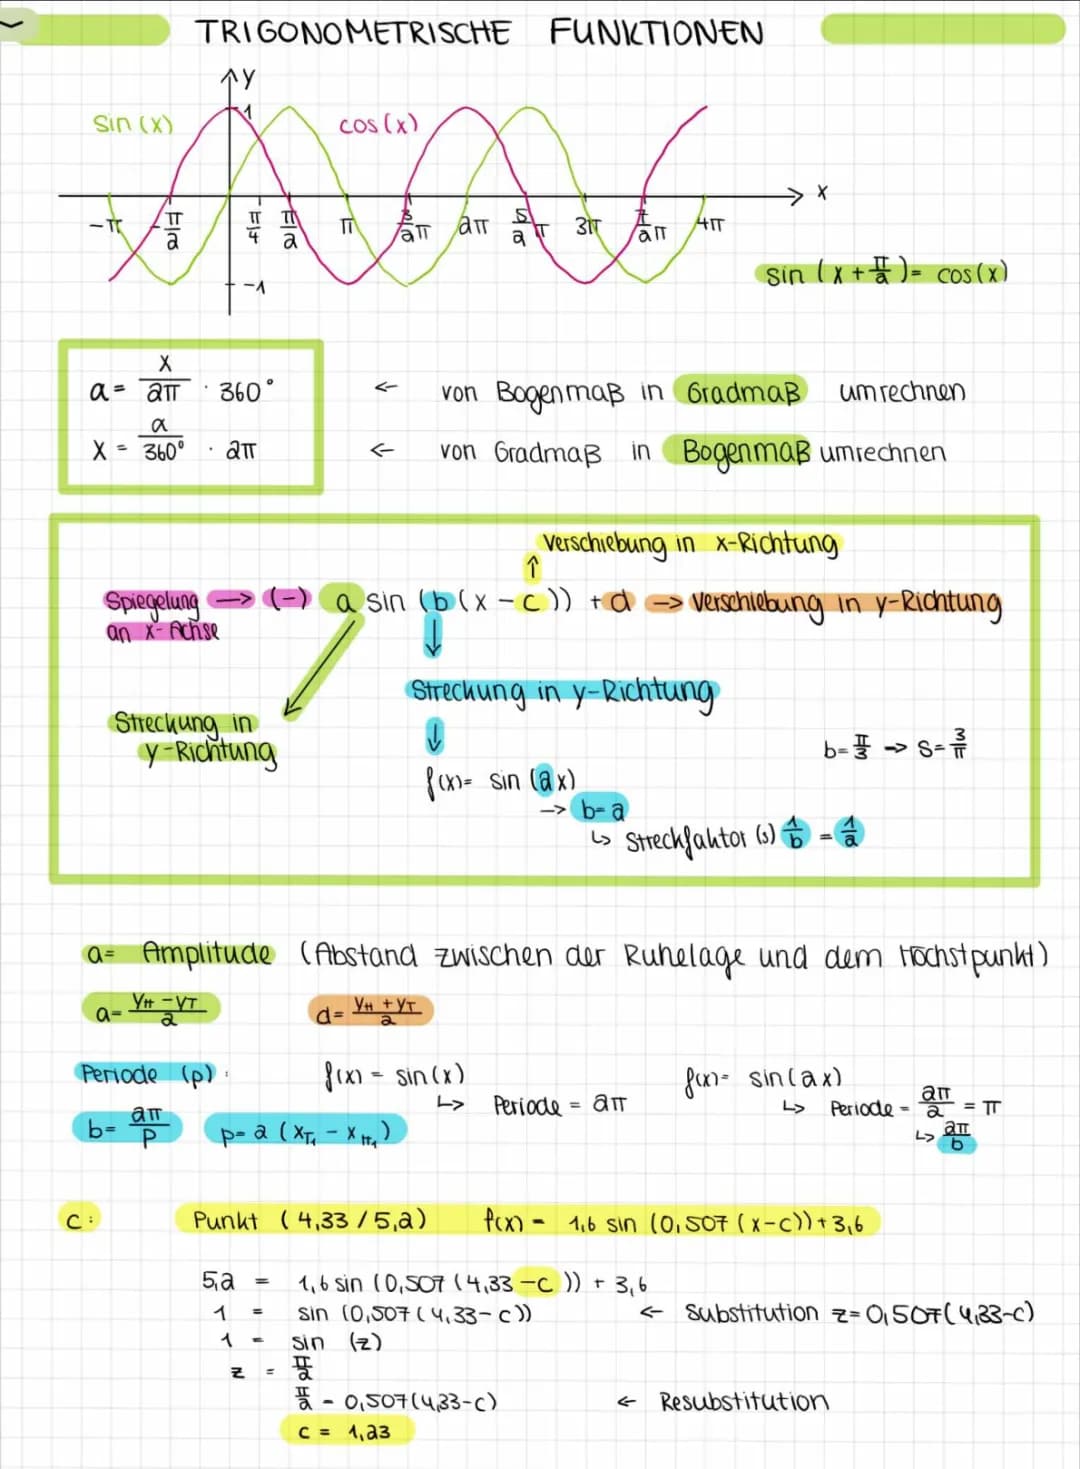 TRIGONOMETRISCHE FUNKTIONEN
y
1
sin(x)
cos(x)
x
-π -π/2 π/4 π/2 π 3/2π 2π 5/2π 3π 7/2π 4π
-1
sin(x+π/2)= cos(x)
α= x/2π · 360° ← von Bogenmaß in Gradmaß umrechnen
x = α/360° · 2π ← von Gradmaß in Bogenmaß umrechnen
Verschiebung in x-Richtung
↑
Spiegelung → (-) a sin (b(x-c)) +d → Verschiebung in y-Richtung
an x-Achse
↓
Streckung in y-Richtung
Streckung in
y-Richtung
↓
b=π/3 → s=3/π
f(x)= sin(2x)
→ b=2
↳ Streckfaktor (s) 1/b = 1/2
a= Amplitude (Abstand zwischen der Ruhelage und dem Höchstpunkt)
a= yH-yT/2 d= yH+yT/2
Periode (p): f(x) = sin(x) f(x)= sin(2x)
↳ Periode = 2π ↳ Periode = 2π/2 = π
b= 2π/p p= 2(xT1 - xH1) ↳ 2π/b
c: Punkt (4,33/5,2) f(x) = 1,6 sin (0,507(x-c))+3,6
5,2 = 1,6 sin (0,507(4,33-c)) + 3,6
1 = sin (0,507(4,33-c)) ← Substitution z=0,507(4,33-c)
1 = sin (z)
z = π/2
π/2 = 0,507(4,33-c) ← Resubstitution
c = 1,23